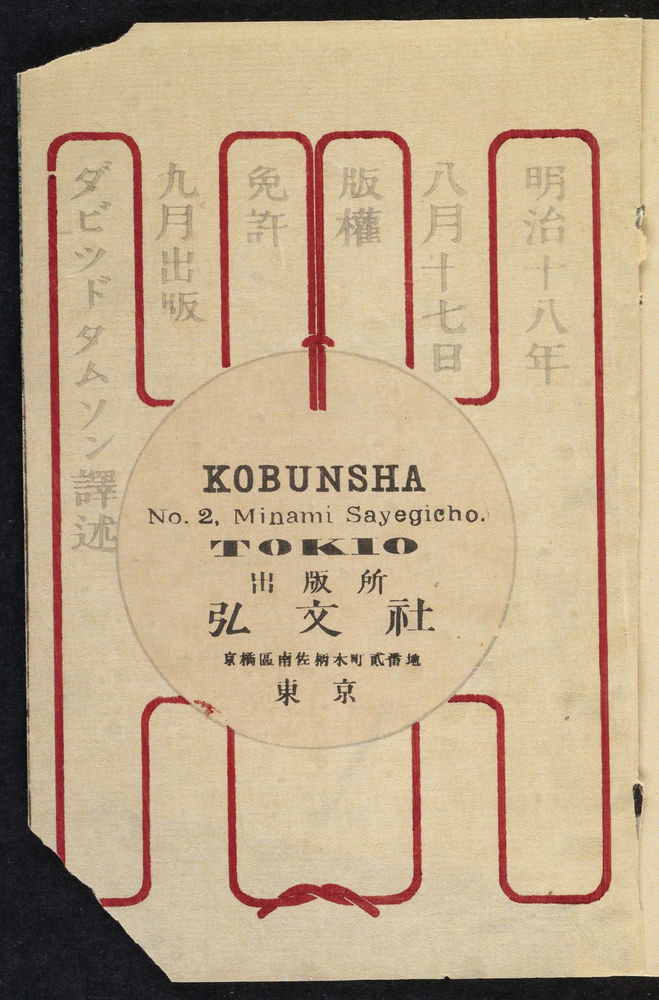 明治十八年
八月十七日
版權
免許
九月出版
ダビツドタムソン譯述
KOBUNSHA
No. 2, Minami Sayegicho.
TOKIO
出版所
弘文社
京橋區南佐柄木町貳番地
東京